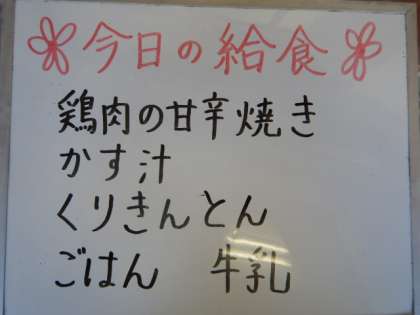 今日の給食
鶏肉の甘辛焼き
かす汁
くりきんとん
ごはん 牛乳